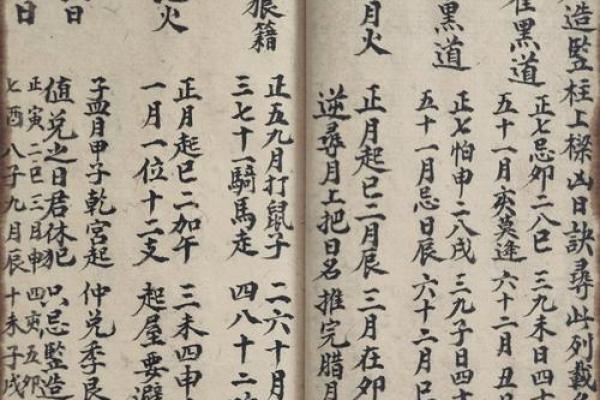 造監柱上樑凶日訣尋此列載
黑道
正七忌卯二八巳 三九未日四十
五十一月亥莫逢 六十二月丑日
黑道
正七怕申二八戌 三九子日四十
五十一月忌日辰 六十二月巳
月火
正月起巳二月辰 三月在卯
逆尋月上把日名 推完腊月
狼籍
正五九月打鼠子 二六十月
三七十一騎馬走 四八十二
火
正月起巳二加午 三未四申
一月一位十二支 起屋要避
日
孟月甲子乾宮起 仲兑季艮
值兑之日君休犯 只忌監造
日
正寅二巳三月申 四亥五卯
七酉八子九月辰 十未子戌